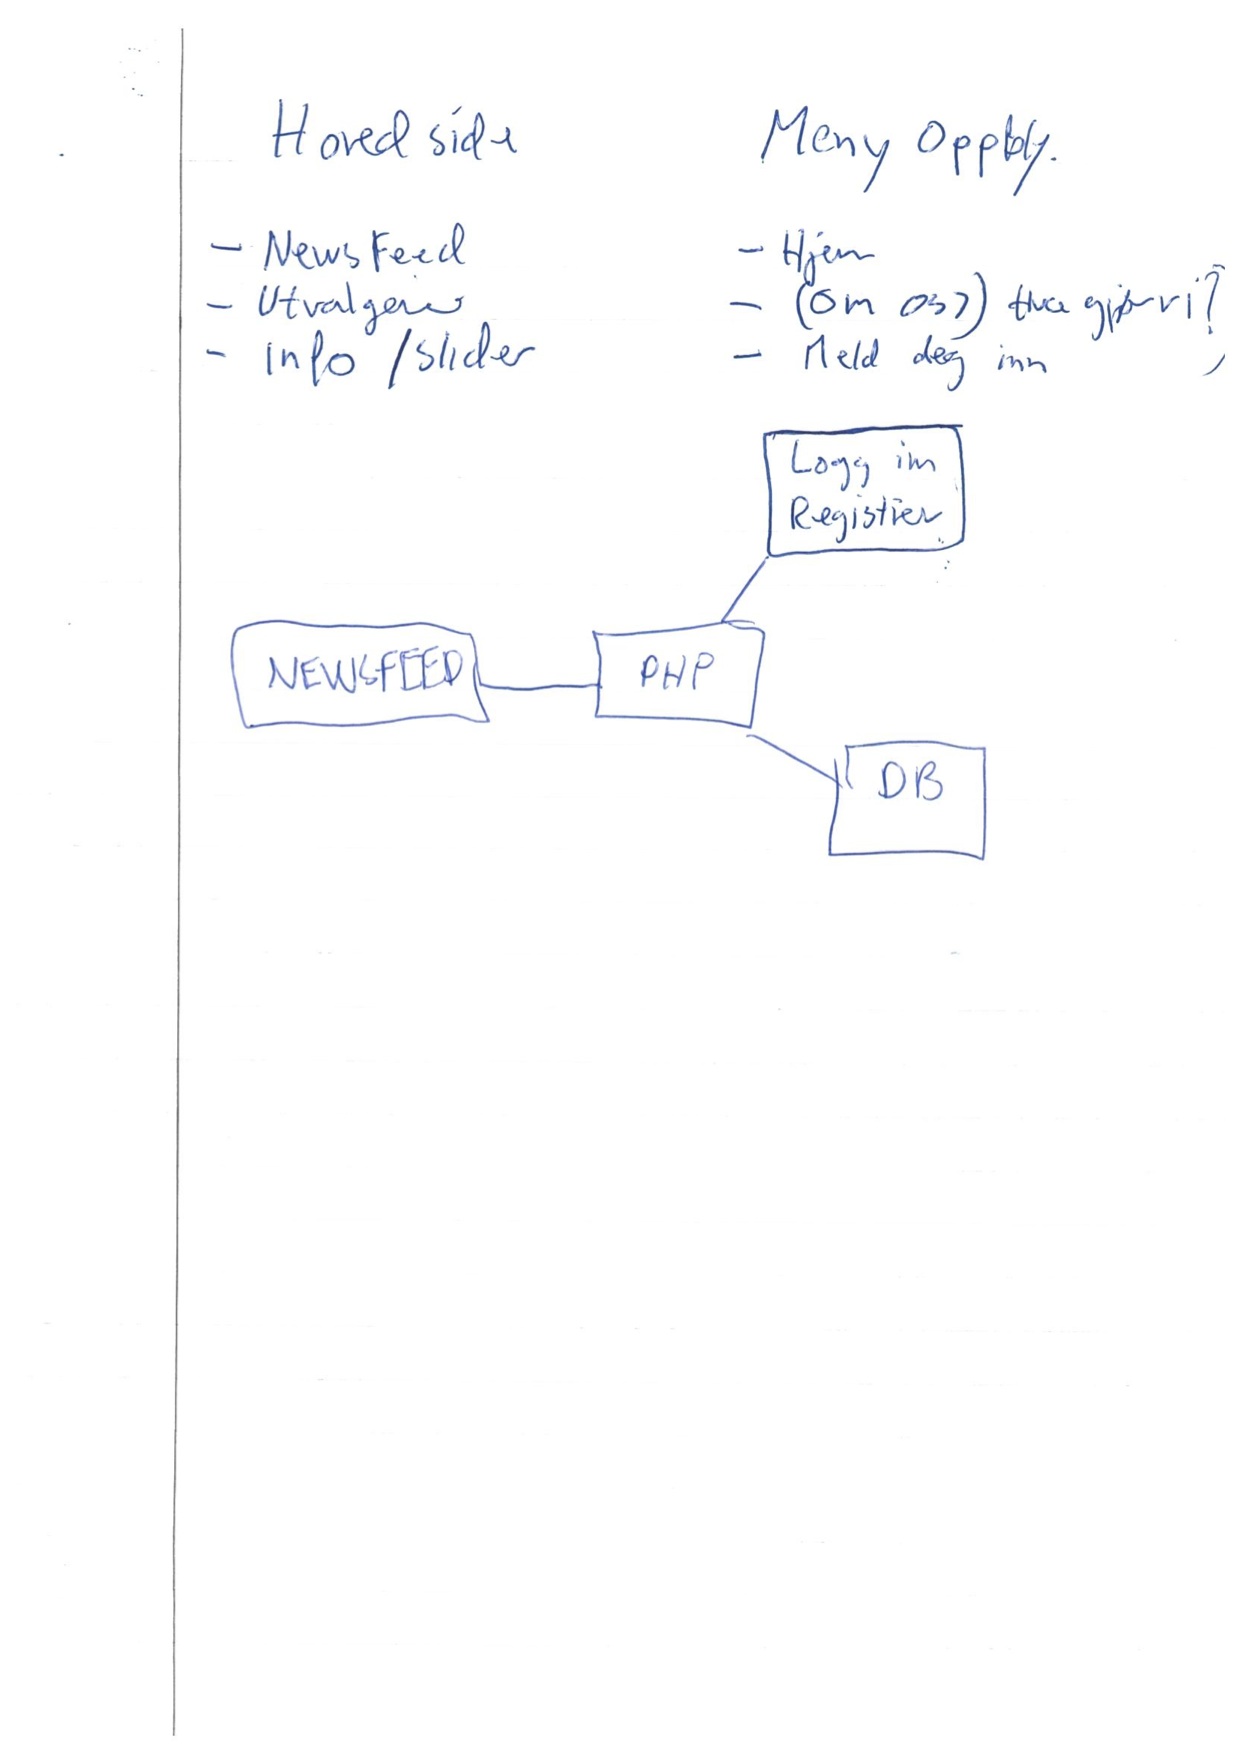 Hovedside
- NewsFeed
- Utvalgene
- Info /slider
Meny
- Hjem
- (Om oss) Hva gjør vi?
- Meld deg inn
Logg inn
Registrer
NEWSFEED
PHP
DB